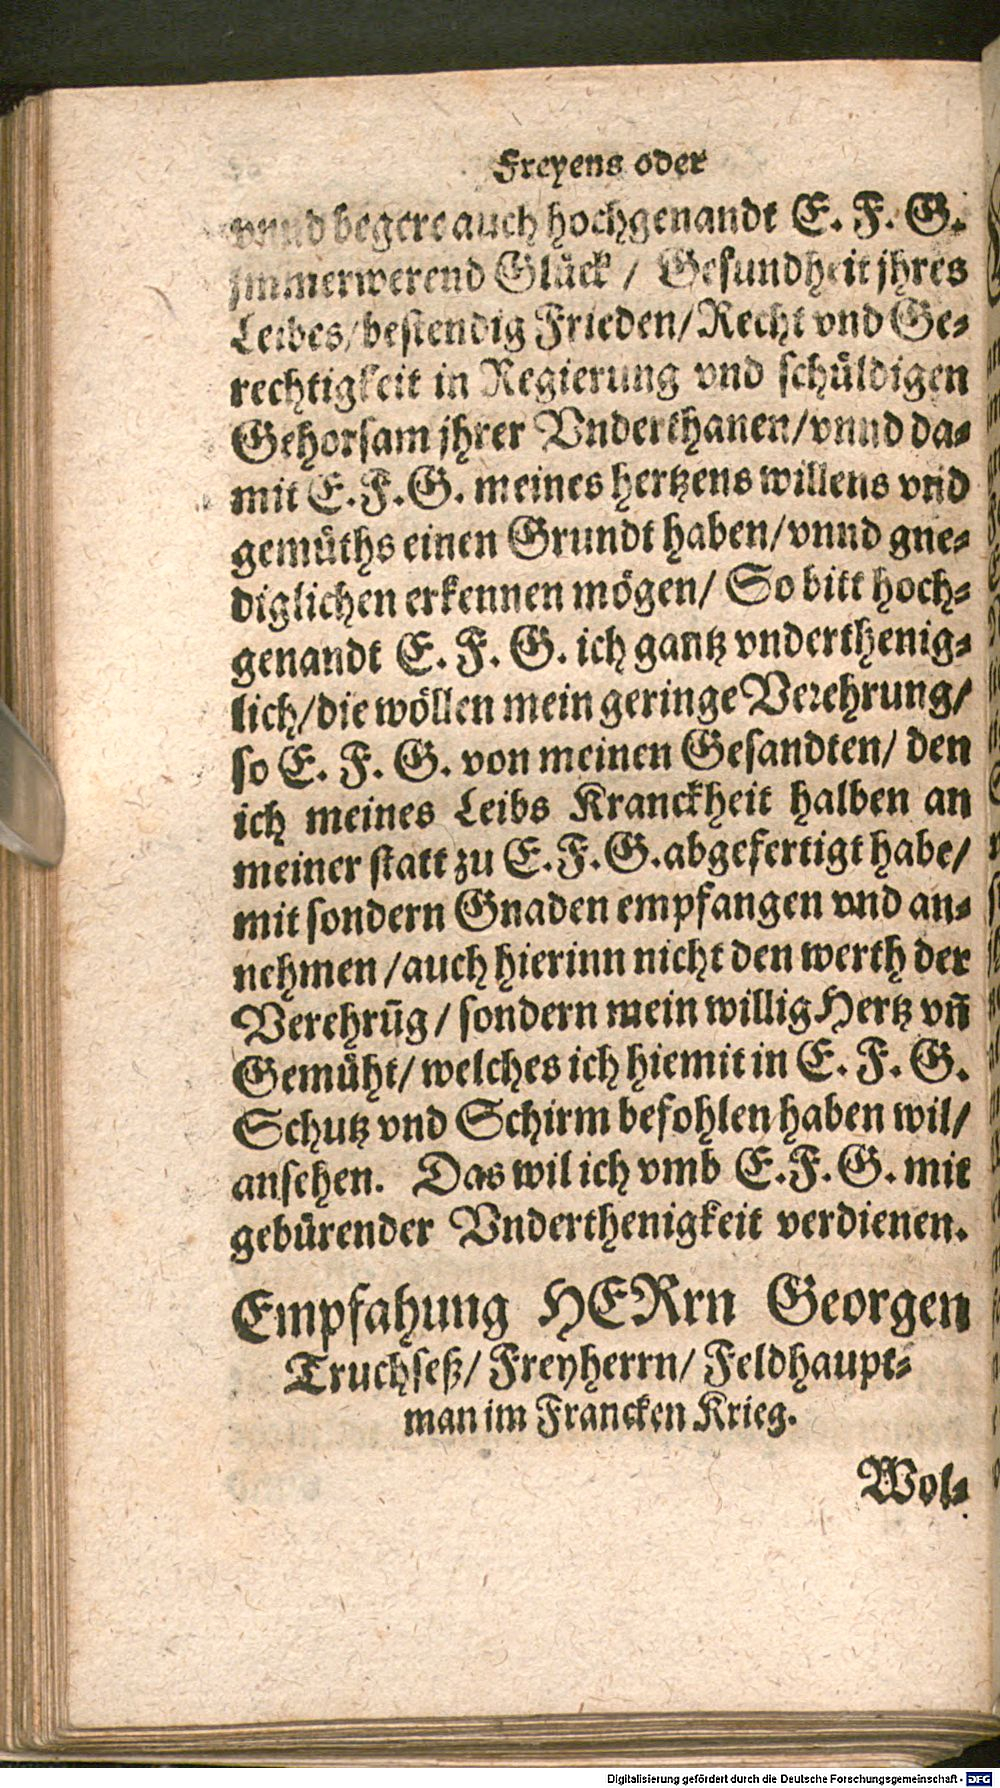 Freyens oder
vnnd begere auch hochgenandt E. F. G.
jmmerwerend Glück / Gesundheit jhres
Leibes/bestendig Frieden/Recht vnd Ge⸗
rechtigkeit in Regierung vnd schüldigen
Gehorsam jhrer Vnderthanen/vnnd da⸗
mit E.F.G. meines hertzens willens vnd
gemüths einen Grundt haben/vnnd gne⸗
diglichen erkennen mögen/ So bitt hoch⸗
genandt E. F. G. ich gantz vnderthenig⸗
lich/die wöllen mein geringe Verehrung/
so E. F. G. von meinen Gesandten/ den
ich meines Leibs Kranckheit halben an
meiner statt zu E.F.G.abgefertigt habe/
mit sondern Gnaden empfangen vnd an⸗
nehmen /auch hierinn nicht den werth der
Verehrūg/ sondern mein willig Hertz vñ
Gemüht/ welches ich hiemit in E. F. G.
Schutz vnd Schirm befohlen haben wil/
ansehen. Das wil ich vmb E.F.G. mit
gebürender Vnderthenigkeit verdienen.
Empfahung HERrn Georgen
Truchseß/ Freyherrn/ Feldhaupt⸗
man im Francken Krieg.
Wol⸗
Digitalisierung gefördert durch die Deutsche Forschungsgemeinschaft - DFG